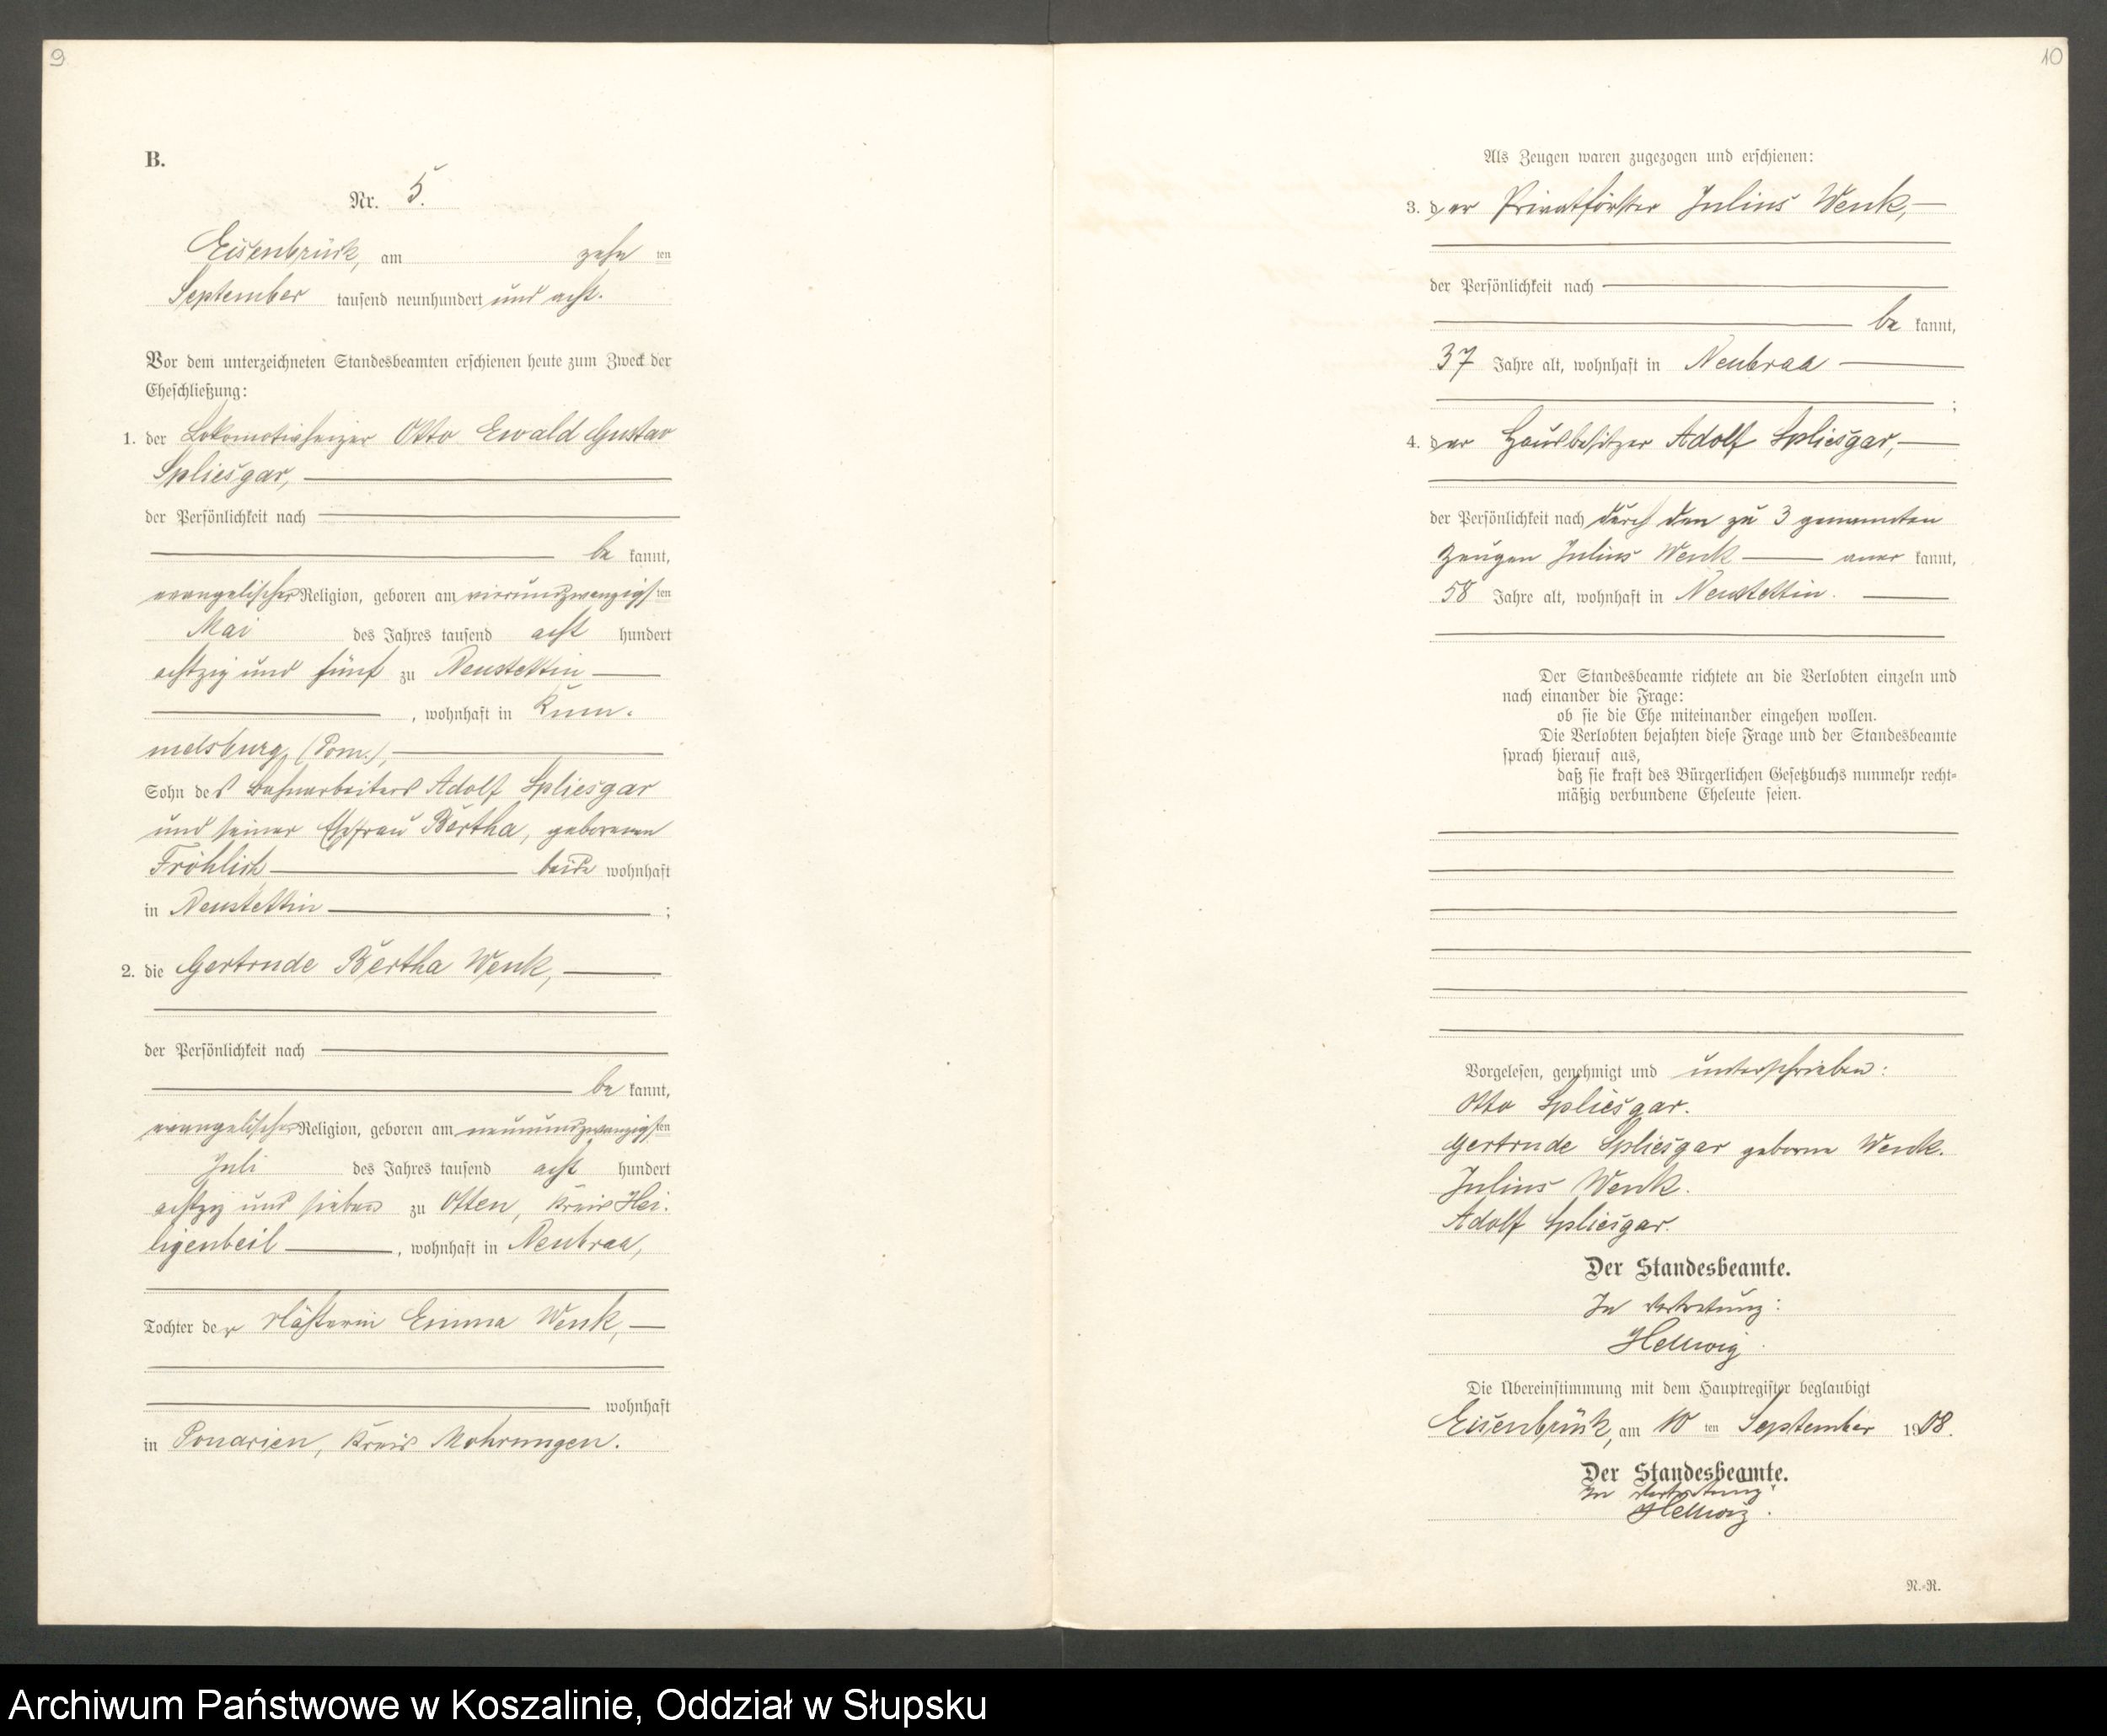 9
B.
Nr. 5.
Eisenbrück, am zehn ten
September tausend neunhundert und acht.
Vor dem unterzeichneten Standesbeamten erschienen heute zum Zweck der
Eheschließung:
1. der Lokomotivheizer Otto Ewald Gustav
Spliesgar,
der Persönlichkeit nach
be kannt,
evangelischer Religion, geboren am vierundzwanzigsten
Mai des Jahres tausend acht hundert
achtzig und fünf zu Neustettin
, wohnhaft in Rum-
melsburg (Pom.),
Sohn des Bahnarbeiters Adolf Spliesgar
und seiner Ehefrau Bertha, geborenen
Fröhlich beide wohnhaft
in Neustettin ;
2. die Gertrude Bertha Wenk,
der Persönlichkeit nach
be kannt,
evangelischer Religion, geboren am neunundzwanzigsten
Juli des Jahres tausend acht hundert
achtzig und sieben zu Otten, Kreis Hei-
ligenbeil , wohnhaft in Neubraa,
Tochter der Emma Wenk,
wohnhaft
in Ponarien, Kreis Mohrungen.
10
Als Zeugen waren zugezogen und erschienen:
3. der Privatförster Julius Wenk,
der Persönlichkeit nach
be kannt,
37 Jahre alt, wohnhaft in Neubraa
;
4. der Hausbesitzer Adolf Spliesgar,
der Persönlichkeit nach durch den zu 3 genannten
Zeugen Julius Wenk aner kannt,
58 Jahre alt, wohnhaft in Neustettin.
Der Standesbeamte richtete an die Verlobten einzeln und
nach einander die Frage:
ob sie die Ehe miteinander eingehen wollen.
Die Verlobten bejahten diese Frage und der Standesbeamte
sprach hierauf aus,
daß sie kraft des Bürgerlichen Gesetzbuchs nunmehr recht-
mäßig verbundene Eheleute seien.
Vorgelesen, genehmigt und unterschrieben:
Otto Spliesgar.
Gertrude Spliesgar geborne Wenk.
Julius Wenk.
Adolf Spliesgar.
Der Standesbeamte.
In Vertretung:
Hellwig.
Die Übereinstimmung mit dem Hauptregister beglaubigt
Eisenbrück, am 10 ten September 1908.
Der Standesbeamte.
In Vertretung:
Hellwig.
N.-R.
Archiwum Państwowe w Koszalinie, Oddział w Słupsku